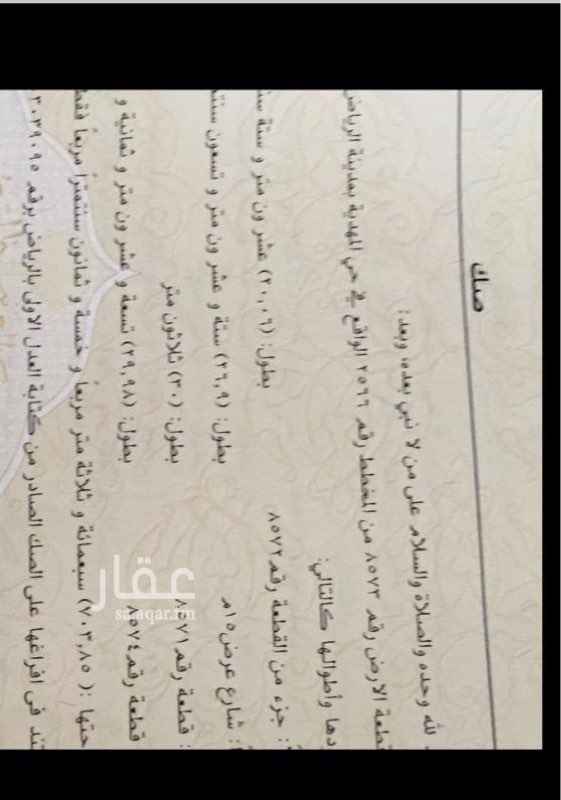 صك
لله وحده والصلاة والسلام على من لا نبي بعده، وبعد:
قطعة الارض رقم ٨٥٧٣ من المخطط رقم ٢٥٩٦ الواقع في حي المهدية بمدينة الرياض
دها وأطوالها كالتالي:
: جزء من القطعة رقم ٨٥٧٢ بطول: (٢٠,٠٦) عشرون متر و ستة سن
: شارع عرض ١٥م بطول: (٢٦,٩) ستة و عشرون متر و تسعون سنت
: قطعة رقم ٨٥٧١ بطول: (٣٠) ثلاثون متر
قطعة رقم ٨٥٧٤ بطول: (٢٩,٩٨) تسعة و عشرون متر و ثمانية و
حتها: (٧٠٣,٨٥) سبعمائة و ثلاثة متر مربعاً و خمسة و ثمانون سنتمتراً مربعاً فقط
تند في افراغها على الصك الصادر من كتابة العدل الاولى بالرياض برقم
عقار
sa.aqar.fm